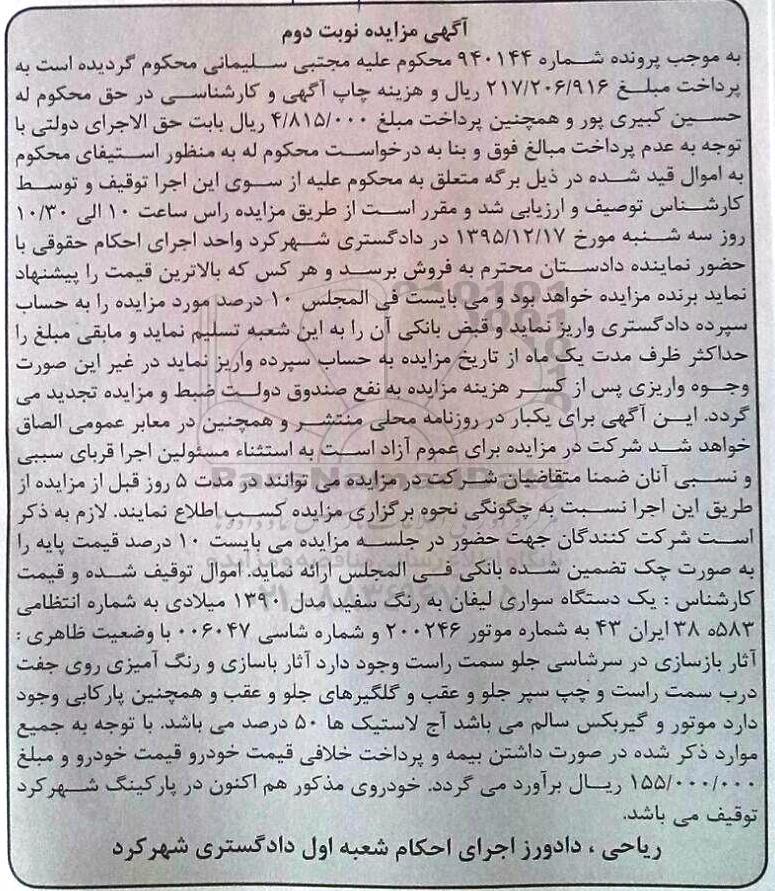 آگهی مزایده نوبت دوم
به موجب پرونده شماره ۹۴۰۱۴۴ محکوم علیه مجتبی سلیمانی محکوم گردیده است به
پرداخت مبلغ ۲۱۷/۲۰۶/۹۱۶ ریال و هزینه چاپ آگهی و کارشناسی در حق محکوم له
حسین کبیری پور و همچنین پرداخت مبلغ ۴/۸۱۵/۰۰۰ ریال بابت حق الاجرای دولتی با
توجه به عدم پرداخت مبالغ فوق و بنا به درخواست محکوم له به منظور استیفای محکوم
به اموال قید شده در ذیل برگه متعلق به محکوم علیه از سوی این اجرا توقیف و توسط
کارشناس توصیف و ارزیابی شد و مقرر است از طریق مزایده راس ساعت ۱۰ الی ۱۰/۳۰
روز سه شنبه مورخ ۱۳۹۵/۱۲/۱۷ در دادگستری شهرکرد واحد اجرای احکام حقوقی با
حضور نماینده دادستان محترم به فروش برسد و هر کس که بالاترین قیمت را پیشنهاد
نماید برنده مزایده خواهد بود و می بایست فی المجلس ۱۰ درصد مورد مزایده را به حساب
سپرده دادگستری واریز نماید و قبض بانکی آن را به این شعبه تسلیم نماید و مابقی مبلغ را
حداکثر ظرف مدت یک ماه از تاریخ مزایده به حساب سپرده واریز نماید در غیر این صورت
وجوه واریزی پس از کسر هزینه مزایده به نفع صندوق دولت ضبط و مزایده تجدید می
گردد. این آگهی برای یکبار در روزنامه محلی منتشر و همچنین در معابر عمومی الصاق
خواهد شد شرکت در مزایده برای عموم آزاد است به استثناء مسئولین اجرا قربای سببی
و نسبی آنان ضمنا متقاضیان شرکت در مزایده می توانند در مدت ۵ روز قبل از مزایده از
طریق این اجرا نسبت به چگونگی نحوه برگزاری مزایده کسب اطلاع نمایند. لازم به ذکر
است شرکت کنندگان جهت حضور در جلسه مزایده می بایست ۱۰ درصد قیمت پایه را
به صورت چک تضمین شده بانکی فی المجلس ارائه نماید. اموال توقیف شده و قیمت
کارشناس : یک دستگاه سواری لیفان به رنگ سفید مدل ۱۳۹۰ میلادی به شماره انتظامی
۵۸۳ه ۳۸ ایران ۴۳ به شماره موتور ۲۰۰۲۴۶ و شماره شاسی ۰۰۶۰۴۷ با وضعیت ظاهری :
آثار بازسازی در سرشاسی جلو سمت راست وجود دارد آثار باسازی و رنگ آمیزی روی جفت
درب سمت راست و چپ سپر جلو و عقب و گلگیرهای جلو و عقب و همچنین پارکابی وجود
دارد موتور و گیربکس سالم می باشد آج لاستیک ها ۵۰ درصد می باشد. با توجه به جمیع
موارد ذکر شده در صورت داشتن بیمه و پرداخت خلافی قیمت خودرو قیمت خودرو و مبلغ
۱۵۵/۰۰۰/۰۰۰ ریال برآورد می گردد. خودروی مذکور هم اکنون در پارکینگ شهرکرد
توقیف می باشد.
ریاحی ، دادورز اجرای احکام شعبه اول دادگستری شهرکرد